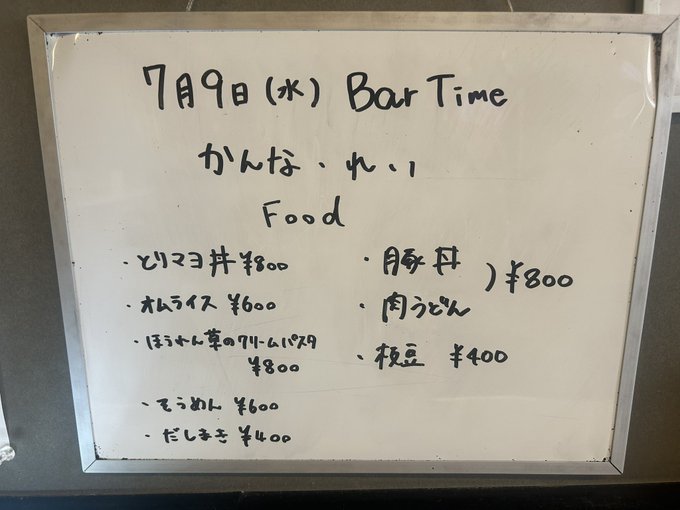 7月9日(水) Bar Time
かんな・れい
Food
・とりマヨ丼 ¥800
・オムライス ¥600
・ほうれん草のクリームパスタ
¥800
・そうめん ¥600
・だしまき ¥400
・豚丼
・肉うどん
) ¥800
・枝豆 ¥400